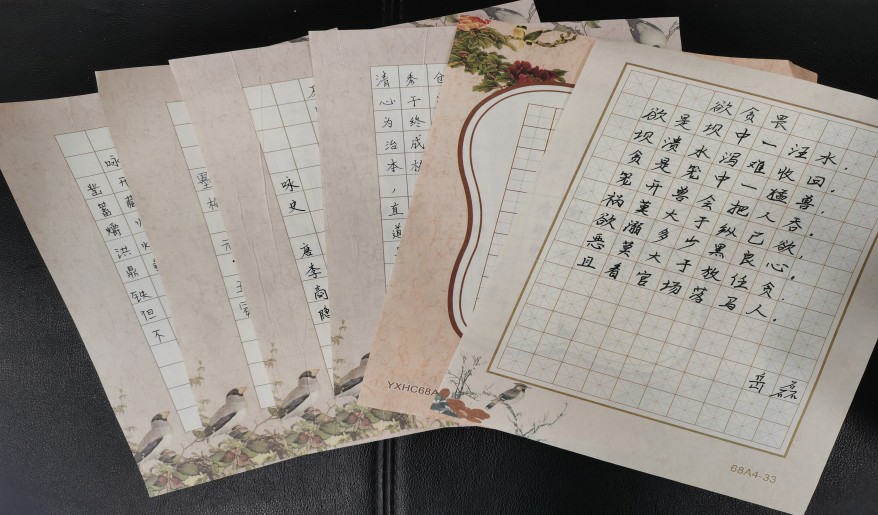 咏
凿开
蓄藏
爝火
洪
鼎
铁
但
不
墨梅
元.王
咏史 唐李商隐
秀干终成
清心为治本，直道
YXHC68A
欲贪畏
欲是坝中一汪水，
坝溃水泻难收回.
贪是笼中一猛兽，
笼开兽会把人吞.
祸莫大于纵己欲，
欲渐多少黑良心.
恶莫大于放任贪.
且看官场落马人.
岳磊
68A4-33